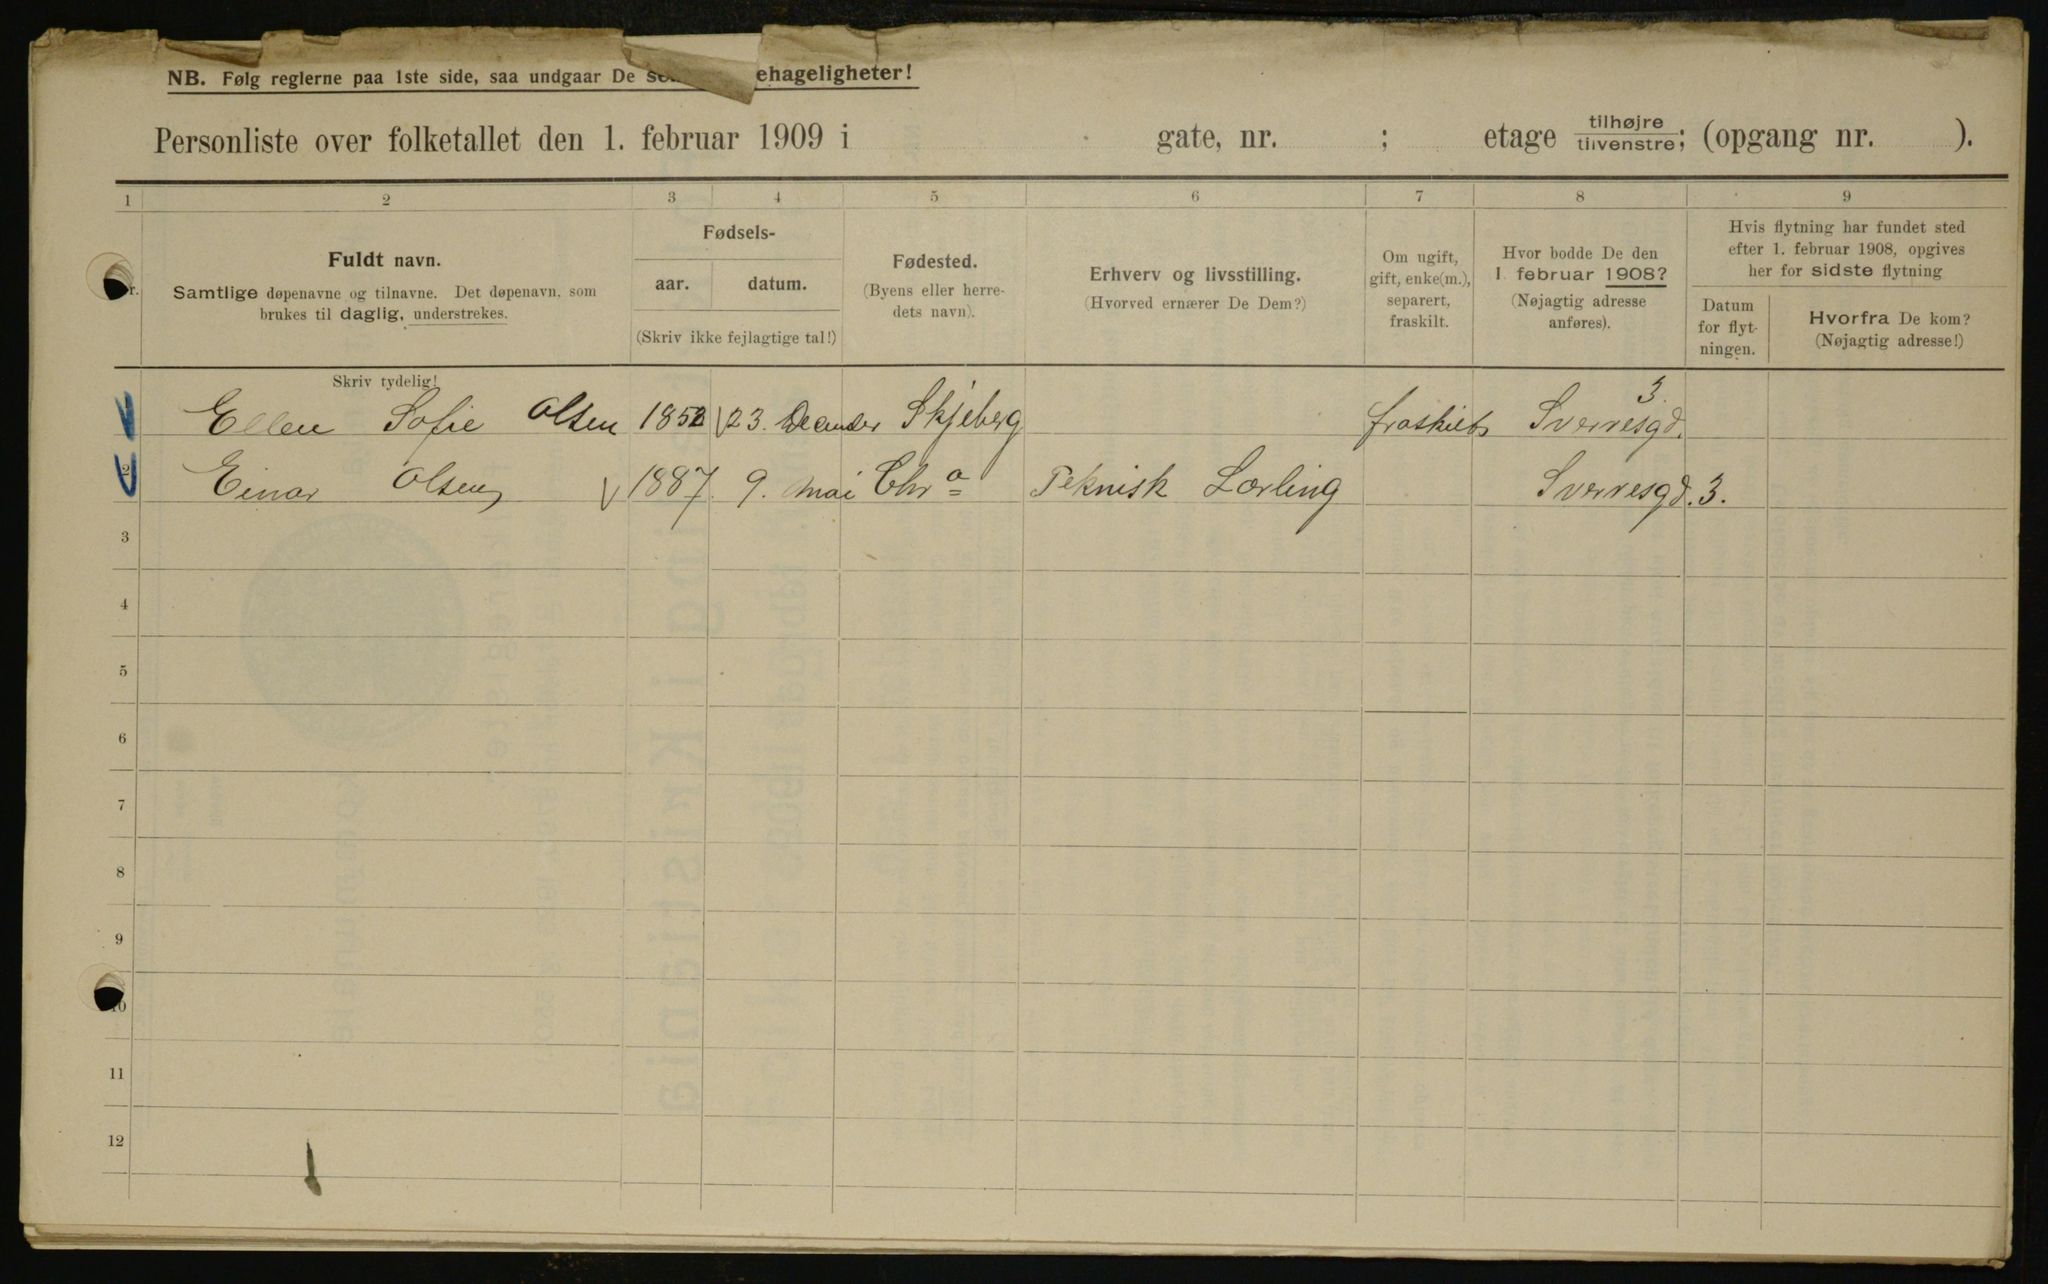 NB. Følg reglerne paa 1ste side, saa undgaar De ehageligheter!
Personliste over folketallet den 1. februar 1909 i gate, nr. ; etage tilhøjre
tilvenstre; (opgang nr. ).
1 2 3 4 5 6 7 8 9
Fuldt navn.
Samtlige døpenavne og tilnavne. Det døpenavn, som
brukes til daglig, understrekes.
Skriv tydelig!
Fødsels-
aar. datum.
(Skriv ikke fejlagtige tal!)
Fødested.
(Byens eller herre-
dets navn).
Erhverv og livsstilling.
(Hvorved ernærer De Dem?)
Om ugift,
gift, enke(m.),
separert,
fraskilt.
Hvor bodde De den
1. februar 1908?
(Nøjagtig adresse
anføres).
Hvis flytning har fundet sted
efter 1. februar 1908, opgives
her for sidste flytning
Datum
for flyt-
ningen.
Hvorfra De kom?
(Nøjagtig adresse!)
Ellen Sofie Olsen 1852 23. December Skjeberg fraskilt Sverresgd. 3.
2 Einar Olsen 1887. 9. mai Chr a Teknisk Lærling Sverresgd. 3.
3
4
5
6
7
8
9
10
11
12